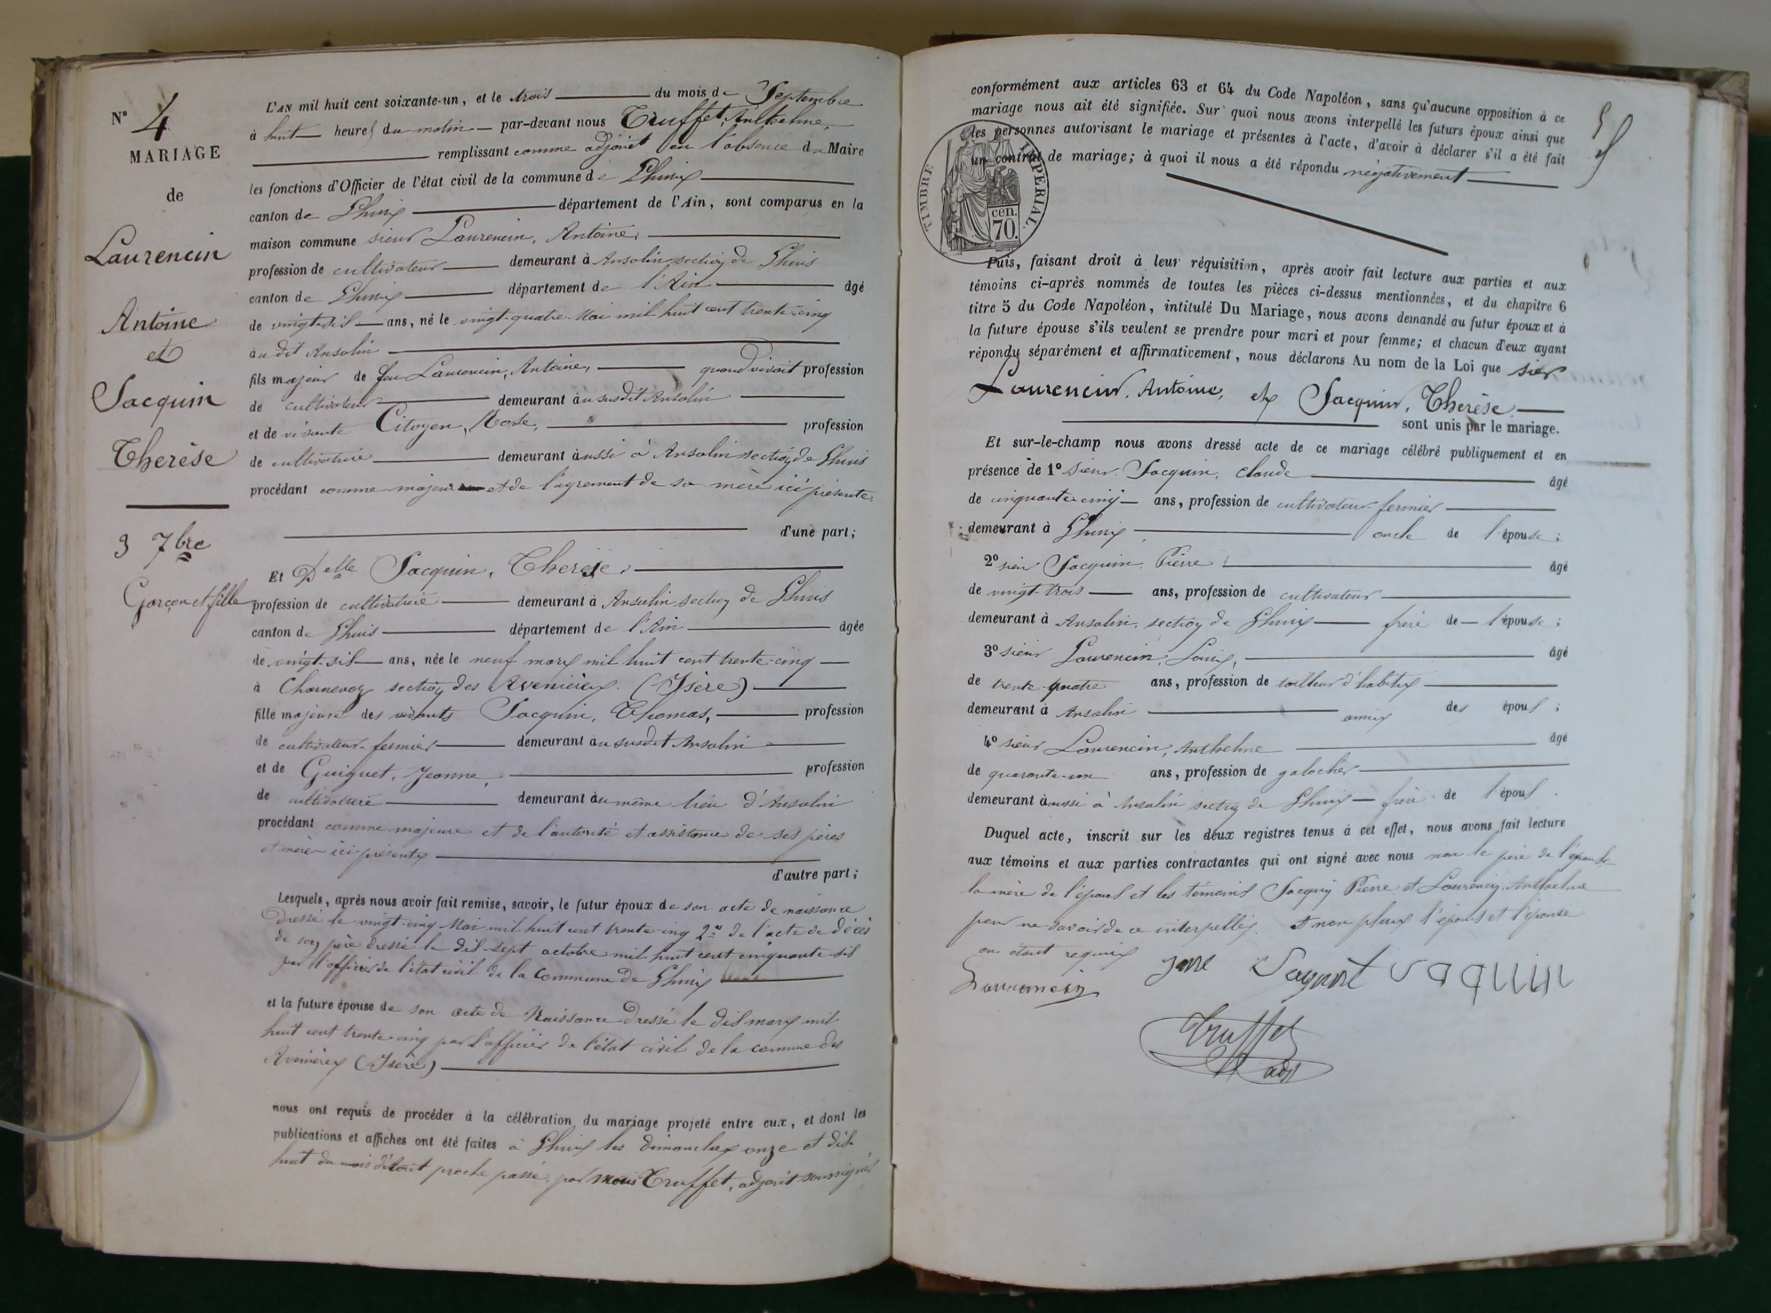 N° 4
MARIAGE
de
Laurencin
Antoine
et
Jacquin
Therèse
3 7bre
Garçon et fille
L'AN mil huit cent soixante-un, et le trois du mois de Septembre
à huit heures du matin par-devant nous Truffet, Anthelme,
remplissant comme adjoint en l'absence du Maire
les fonctions d'Officier de l'état civil de la commune de Lhuis
canton de Lhuis département de l'Ain, sont comparus en la
maison commune sieur Laurencin, Antoine,
profession de cultivateur demeurant à Ansolin section de Lhuis
canton de Lhuis département de l'Ain âgé
de vingt-six ans, né le vingt-quatre Mai mil huit cent trente-cinq
au dit Ansolin
fils majeur de feu Laurencin, Antoine, quand vivait profession
de cultivateur demeurant au susdit Ansolin
et de vivante Citoyen, Rose, profession
de cultivatrice demeurant aussi à Ansolin section de Lhuis
procédant comme majeur et de l'agrement de sa mère ici présente
d'une part;
Et Delle Jacquin, Therèse,
profession de cultivatrice demeurant à Ansolin section de Lhuis
canton de Lhuis département de l'Ain âgée
de vingt-six ans, née le neuf mars mil huit cent trente-cinq
à section des Avenières (Isère)
fille majeure des vivants Jacquin, Thomas, profession
de cultivateur-fermier demeurant au susdit Ansolin
et de Guiguet, Jeanne, profession
de cultivatrice demeurant au même lieu d'Ansolin
procédant comme majeure et de l'autorité et assistance de ses pères
et mère ici présents
d'autre part;
Lesquels, après nous avoir fait remise, savoir, le futur époux de son acte de naissance
dressé le vingt-cinq Mai mil huit cent trente-cinq 2° de l'acte de décès
de son père dressé le dix-sept octobre mil huit cent cinquante-six
par l'officier de l'état civil de la Commune de Lhuis
et la future épouse de son acte de Naissance dressé le dix mars mil
huit cent trente-cinq par l'officier de l'état civil de la commune des
Avenières (Isère)
nous ont requis de procéder à la célébration du mariage projeté entre eux, et dont les
publications et affiches ont été faites à Lhuis les dimanches onze et dix-
huit du mois d'août proche passé, par nous Truffet, adjoint soussigné
5
conformément aux articles 63 et 64 du Code Napoléon, sans qu'aucune opposition à ce
mariage nous ait été signifiée. Sur quoi nous avons interpellé les futurs époux ainsi que
les personnes autorisant le mariage et présentes à l'acte, d'avoir à déclarer s'il a été fait
un contrat de mariage; à quoi il nous a été répondu négativement
TIMBRE IMPERIAL.
cen.
70.
Puis, faisant droit à leur réquisition, après avoir fait lecture aux parties et aux
témoins ci-après nommés de toutes les pièces ci-dessus mentionnées, et du chapitre 6
titre 5 du Code Napoléon, intitulé Du Mariage, nous avons demandé au futur époux et à
la future épouse s'ils veulent se prendre pour mari et pour femme; et chacun d'eux ayant
répondu séparément et affirmativement, nous déclarons Au nom de la Loi que sier
Laurencin, Antoine, et Jacquin, Therèse,
sont unis par le mariage.
Et sur-le-champ nous avons dressé acte de ce mariage célébré publiquement et en
présence de 1° sieur Jacquin, Claude âgé
de cinquante-cinq ans, profession de cultivateur-fermier
demeurant à Lhuis, oncle de l'épouse;
2° sieur Jacquin, Pierre, âgé
de vingt-trois ans, profession de cultivateur
demeurant à Ansolin, section de Lhuis frère de l'épouse;
3° sieur Laurencin, Louis, âgé
de trente-quatre ans, profession de tailleur d'habits
demeurant à Ansolin amis des époux;
4° sieur Laurencin, Anthelme âgé
de quarante-un ans, profession de galochier
demeurant aussi à Ansolin section de Lhuis frère de l'époux.
Duquel acte, inscrit sur les deux registres tenus à cet effet, nous avons fait lecture
aux témoins et aux parties contractantes qui ont signé avec nous non le père de l'épouse
la mère de l'époux et les témoins Jacquin Pierre et Laurencin Anthelme
pour ne savoir de ce interpellés. Et non plus l'époux et l'épouse
en étant requis
Laurencin Jacquin
Truffet
adjt